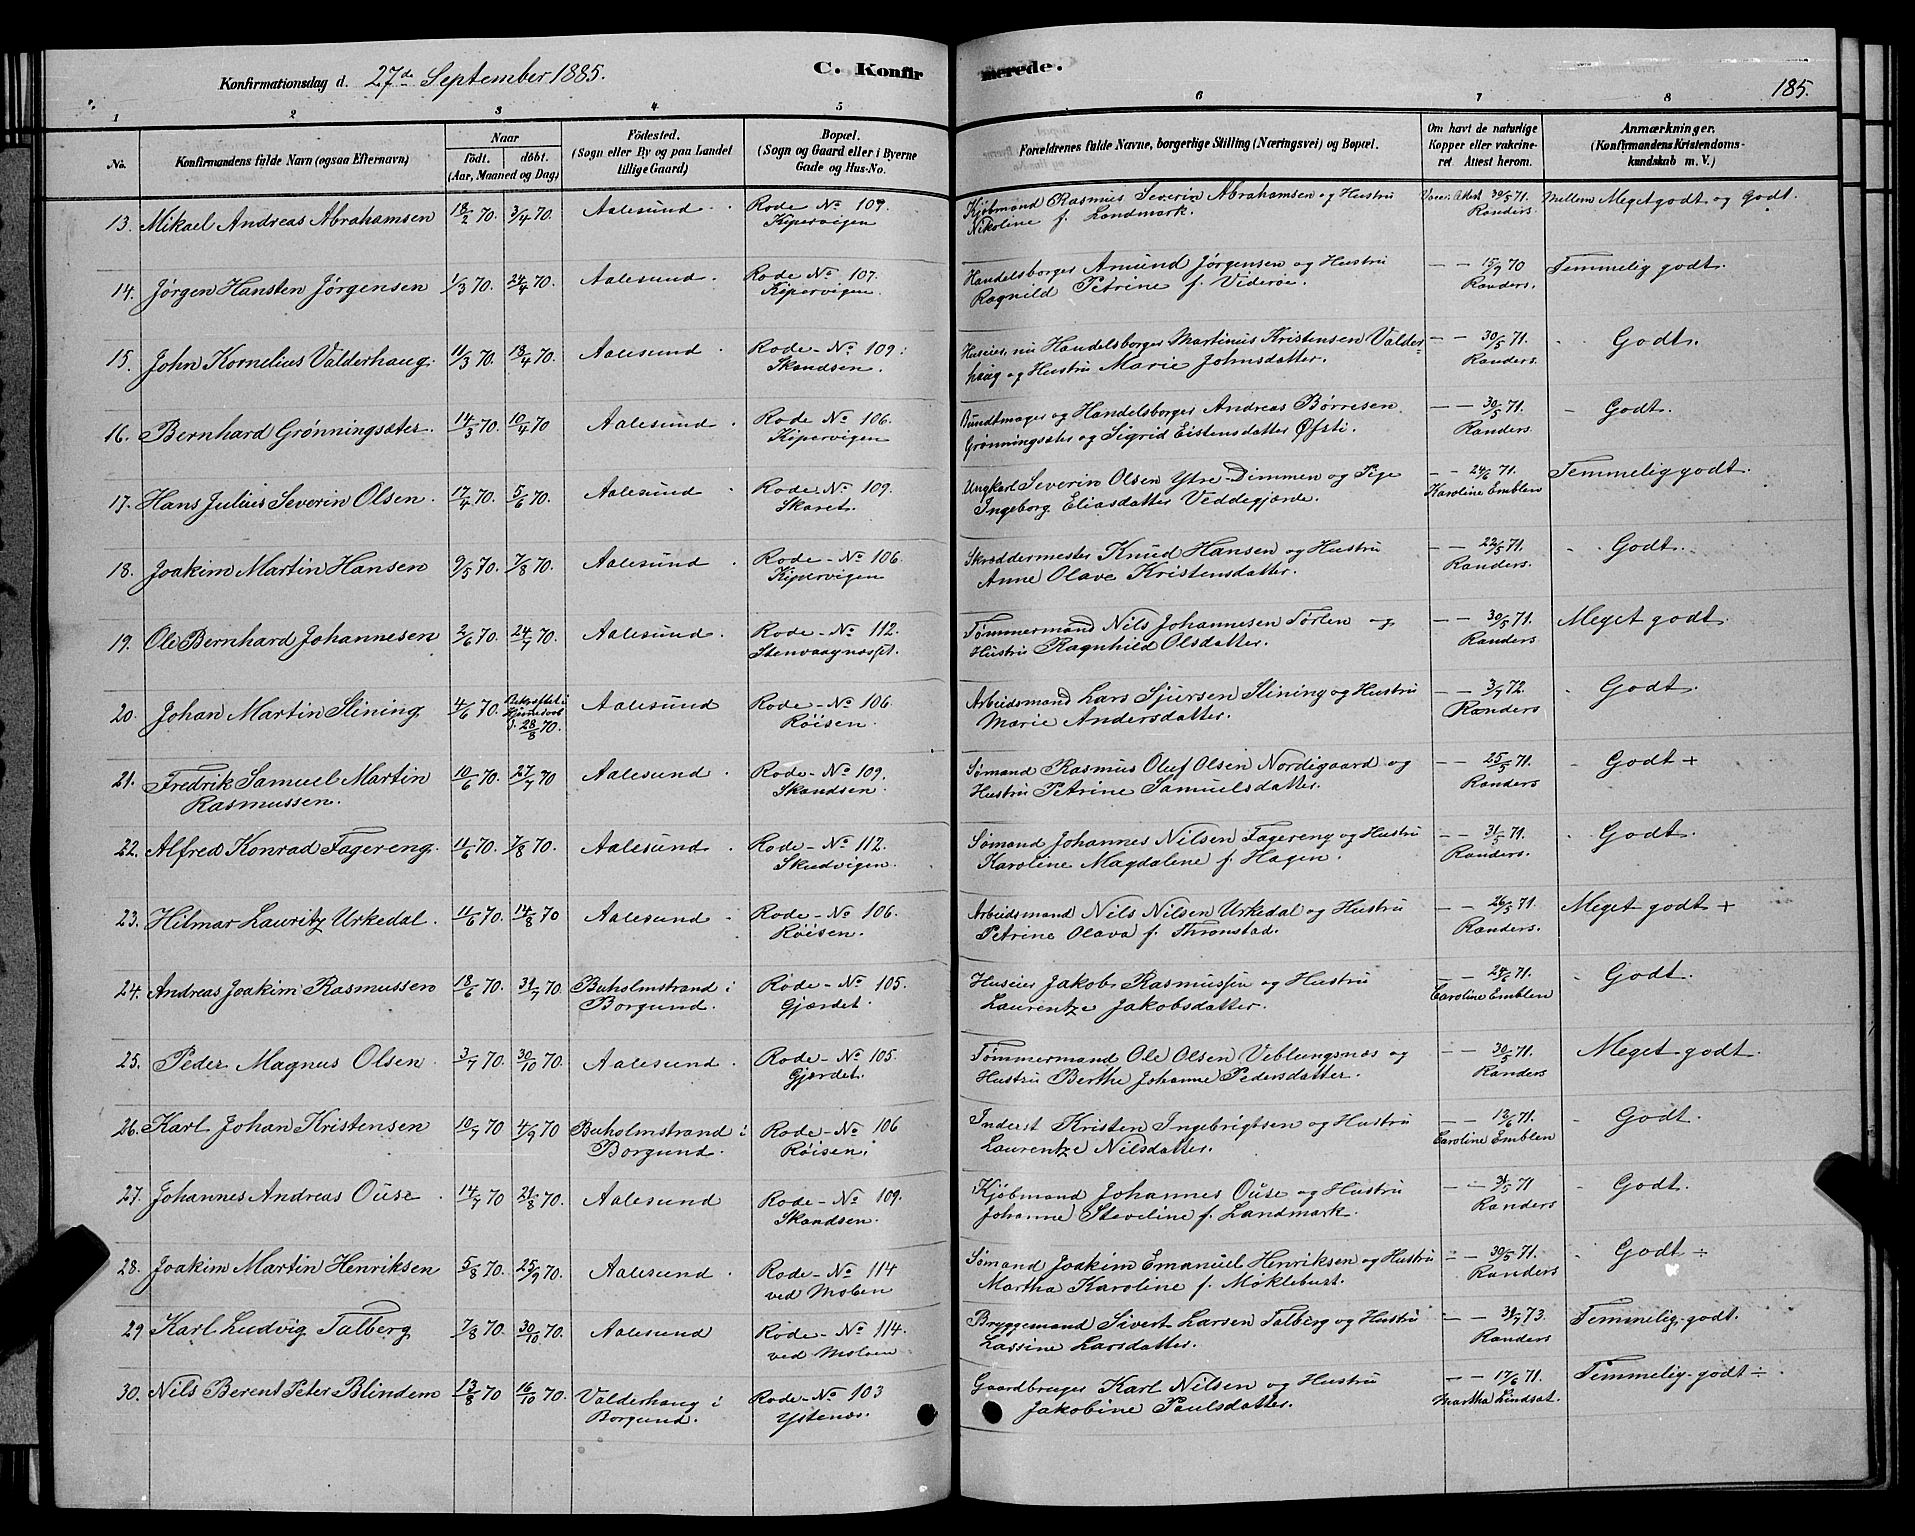 Konfirmationsdag d. 27de September 1885. C. Konfirmerede. 185.
1 2 3 4 5 6 7 8
No. Konfirmandens fulde Navn (ogsaa Efternavn) Naar födt. döbt. (Aar, Maaned og Dag) Födested. (Sogn eller By og paa Landet tillige Gaard) Bopæl. (Sogn og Gaard eller i Byerne Gade og Hus-No. Forældrenes fulde Navne, borgerlige Stilling (Næringsvei) og Bopæl. Om havt de naturlige Kopper eller vakcineret. Attest herom. Anmærkninger. (Konfirmandens Kristendomskundskab m. V.)
13. Mikael Andreas Abrahamsen 18/2 70. 3/4 70. Aalesund. Rode No 109. Kjøbmand Rasmus Severin Abrahamsen og Hustru 30/5 71. Mellem Meget godt og Godt.
Kipervigen Nikoline f. Landmark. Randers.
14. Jørgen Hansten Jørgensen 1/3 70. 24/4 70. Aalesund. Rode No 107. Handelsborger Amund Jørgensen og Hustru — — 15/9 70 Temmelig godt.
Kipervigen. Ragnild Petrine f. Viderøe. Randers.
15. John Kornelius Valderhaug. 11/3 70. 18/4 70. Aalesund. Rode - No 109. Huseier, nu Handelsborger Martinus Kristensen Valder- — — 30/5 71. Godt.
Skandsen. haug og Hustru Marie Johnsdatter. Randers.
16. Bernhard Grønningsæter. 14/3 70. 10/4 70 Aalesund. Rode No 106. Bundtmager og Handelsborger Andreas Børresen — — 30/5 71. Godt.
Kipervigen Grønningsæter og Sigrid Eistensdatter Øfsti. Randers.
17. Hans Julius Severin Olsen. 17/4 70. 5/6 70. Aalesund. Rode No 109. Ungkarl Severin Olsen Ytre-Dimmen og Pige — — 24/6 71. Temmelig godt.
Skaret. Ingeborg Eliasdatter Veddegjærde. Karoline Emblen
18. Joakim Martin Hansen 9/5 70. 7/8 70. Aalesund. Rode - No 106. Skræddermester Knud Hansen og Hustru — — 22/5 71. Godt.
Kipervigen Anne Olave Kristensdatter. Randers.
19. Ole Bernhard Johannesen 2/6 70. 24/7 70. Aalesund. Rode - No 112. Tømmermand Nils Johannesen Tørlen og — — 30/5 71. Meget godt.
Stenvaagnæsset. Hustru Ragnhild Olsdatter. Randers.
20. Johan Martin Slining 4/6 70. Bekræftet i Aalesund Rode - No 106. Arbeidsmand Lars Sjursen Slining og Hustru — — 3/7 72. Godt.
28/8 70. Røisen. Marie Andersdatter. Randers
21. Fredrik Samuel Martin 10/6 70. 27/7 70 Aalesund. Rode - No 109. Sømand Rasmus Oluf Olsen Nordigaard og — — 25/5 71. Godt +
Rasmussen. Skandsen. Hustru Petrine Samuelsdatter. Randers
22. Alfred Konrad Fagereng. 11/6 70. 7/8 70. Aalesund. Rode - No 112. Sømand Johannes Nilsen Fagereng og Hustru — — 31/5 71. Godt.
Skudvigen. Karoline Magdalene f. Hagen. Randers.
23. Hilmar Lauritz Urkedal. 11/6 70. 14/8 70 Aalesund. Rode - No 106. Arbeidsmand Nils Nilsen Urkedal og Hustru — — 26/5 71. Meget godt +
Røisen. Petrine Olava f. Thronstad. Randers.
24. Andreas Joakim Rasmussen 18/6 70. 31/7 70. Buholmstrand i Rode - No 105. Huseier Jakob Rasmussen og Hustru — — 24/6 71. Godt.
Borgund. Gjærdet. Laurentze Jakobsdatter. Caroline Emblen
25. Peder Magnus Olsen. 3/7 70. 30/10 70. Aalesund. Rode - No 105. Tømmermand Ole Olsen Veblungsnæs og — — 30/5 71. Meget godt.
Gjærdet. Hustru Berthe Johanne Pedersdatter. Randers
26. Karl Johan Kristensen 10/7 70 4/9 70 Buholmstrand i Rode - No 106 Inderst Kristen Ingebrigtsen og Hustru — — 12/6 71. Godt.
Borgund. Røisen. Laurentze Nilsdatter. Caroline Emblen
27. Johannes Andreas Ouse. 14/7 70 21/8 70. Aalesund Rode - No 109. Kjøbmand Johannes Ouse og Hustru — — 31/5 71 Godt.
Skandsen. Johanne Steveline f. Landmark. Randers
28. Joakim Martin Henriksen 5/8 70. 25/9 70. Aalesund. Rode - No 114 Sømand Joakim Emanuel Henriksen og Hustru — — 30/5 71. Godt ÷
ved Moloen Martha Karoline f. Møklebust. Randers
29 Karl Ludvig Talberg 7/8 70. 30/10 70. Aalesund Rode - No 114. Bryggemand Sivert Larsen Talberg og Hustru — — 31/7 73. Temmelig godt.
ved Moloen Lassine Larsdatter. Randers
30. Nils Berent Peter Blindem 13/8 70 16/10 70. Valderhaug i Rode - No 103 Gaardbruger Karl Nilsen og Hustru — — 17/6 71. Temmelig godt ÷
Borgund. Ystenæs. Jakobine Paulsdatter. Martha Lindsat.